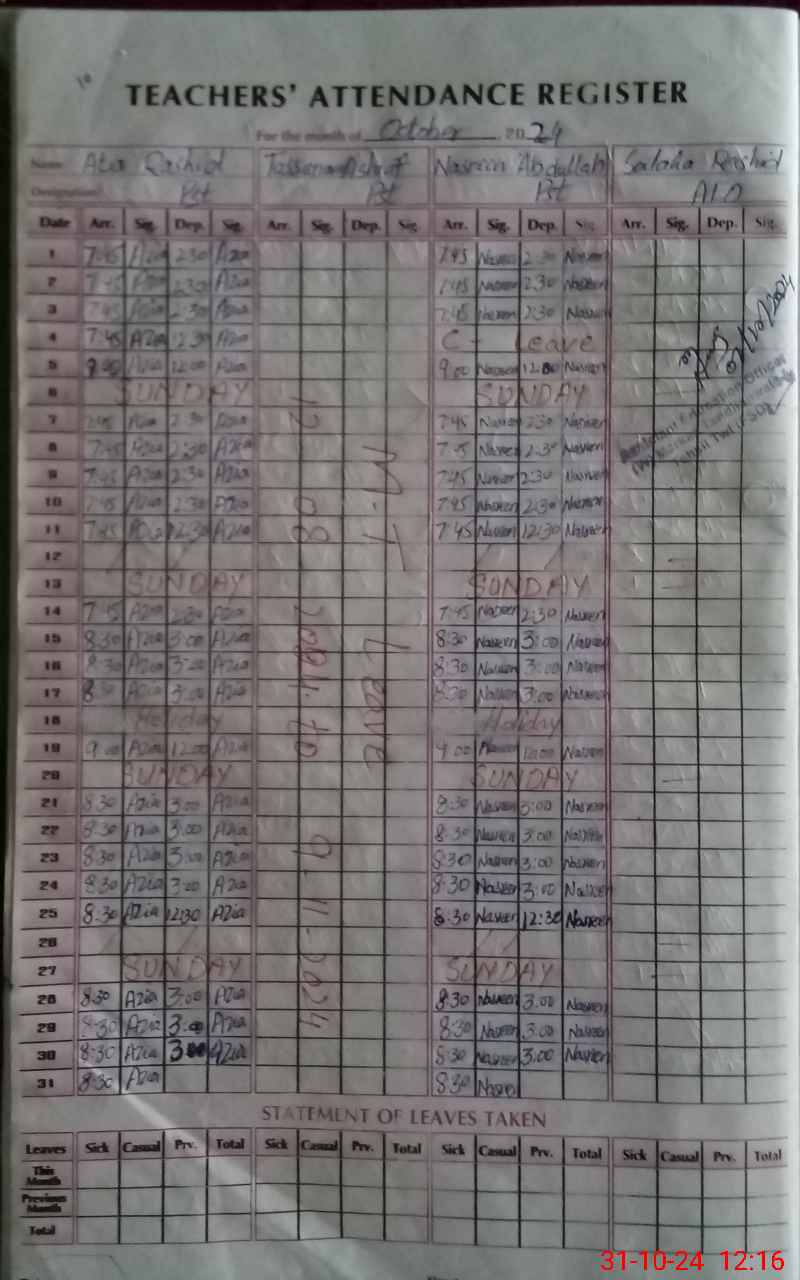 TEACHERS' ATTENDANCE REGISTER
For the month of October 2024
Name Rashid Ashraf Nasreen Abdullah Rashid
Designation Pst Pst Pst
Date Arr. Sig. Dep. Sig. Arr. Sig. Dep. Sig. Arr. Sig. Dep. Sig. Arr. Sig. Dep. Sig.
1 7:45 Azia 2:30 Azia 7:45 Nasreen 2:30 Nasreen
2 7:45 Azia 2:30 Azia 7:45 Nasreen 2:30 Nasreen
3 7:45 Azia 2:30 Azia 7:45 Nasreen 2:30 Nasreen
4 7:45 Azia 2:30 Azia C - Leave
5 9:00 Azia 12:00 Azia 9:00 Nasreen 12:00 Nasreen
6 SUNDAY SUNDAY
7 7:45 Azia 2:30 Azia 7:45 Nasreen 2:30 Nasreen
8 7:45 Azia 2:30 Azia 7:45 Nasreen 2:30 Nasreen
9 7:45 Azia 2:30 Azia 7:45 Nasreen 2:30 Nasreen
10 7:45 Azia 2:30 Azia 7:45 Nasreen 2:30 Nasreen
11 7:45 Azia 12:30 Azia 7:45 Nasreen 12:30 Nasreen
12
13 SUNDAY SUNDAY
14 7:45 Azia 2:30 Azia 7:45 Nasreen 2:30 Nasreen
15 8:30 Azia 3:00 Azia 8:30 Nasreen 3:00 Nasreen
16 8:30 Azia 3:00 Azia 8:30 Nasreen 3:00 Nasreen
17 8:30 Azia 3:00 Azia 8:30 Nasreen 3:00 Nasreen
18 Holiday Holiday
19 9:00 Azia 12:00 Azia 9:00 Nasreen 12:00 Nasreen
20 SUNDAY SUNDAY
21 8:30 Azia 3:00 Azia 8:30 Nasreen 3:00 Nasreen
22 8:30 Azia 3:00 Azia 8:30 Nasreen 3:00 Nasreen
23 8:30 Azia 3:00 Azia 8:30 Nasreen 3:00 Nasreen
24 8:30 Azia 3:00 Azia 8:30 Nasreen 3:00 Nasreen
25 8:30 Azia 12:30 Azia 8:30 Nasreen 12:30 Nasreen
26
27 SUNDAY SUNDAY
28 8:30 Azia 3:00 Azia 8:30 Nasreen 3:00 Nasreen
29 8:30 Azia 3:00 Azia 8:30 Nasreen 3:00 Nasreen
30 8:30 Azia 3:00 Azia 8:30 Nasreen 3:00 Nasreen
31 8:30 Azia 8:30 Nasreen
12 - 08 - 2024 To 9 - 11 - 2024
M-T Leave
Assistant Education Officer
STATEMENT OF LEAVES TAKEN
Leaves Sick Casual Prv. Total Sick Casual Prv. Total Sick Casual Prv. Total Sick Casual Prv. Total
This Month
Previous Month
Total
31-10-24 12:16